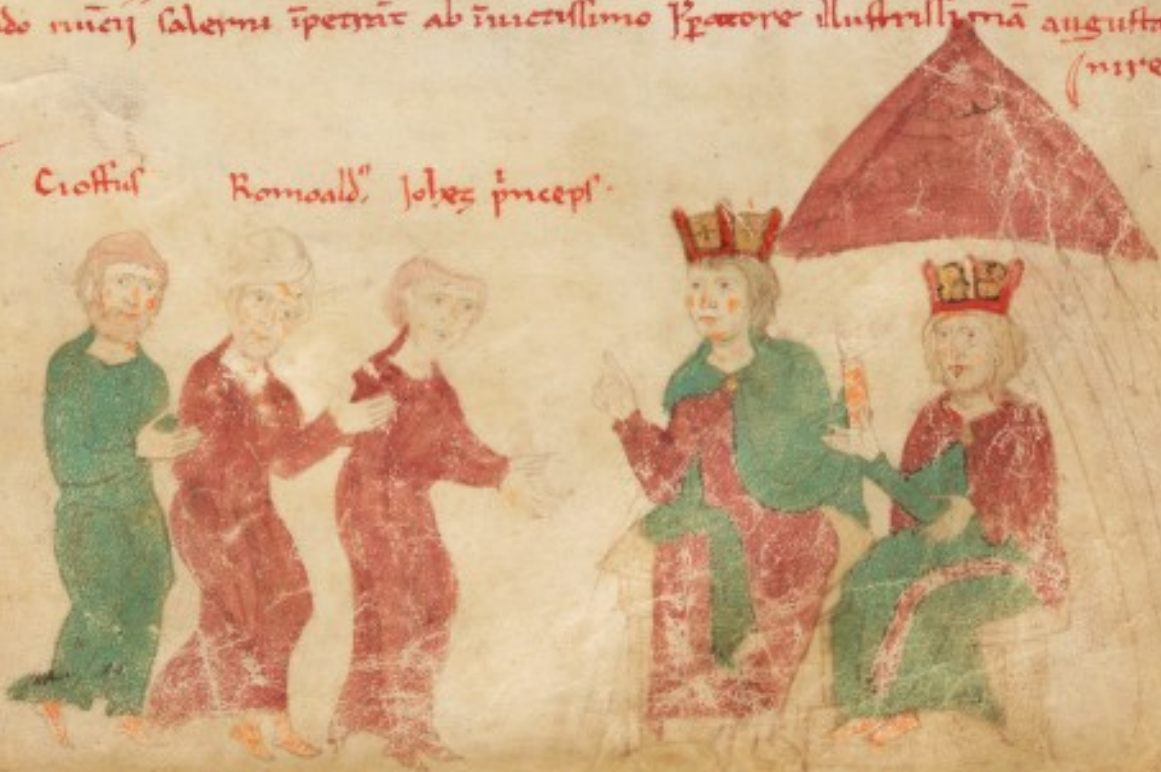 do nūcij salerni īpetrāt ab īuictissimo īp̱atore illustrissimā augusta
Cioffus Romoaldꝰ Johes pͥnceps.